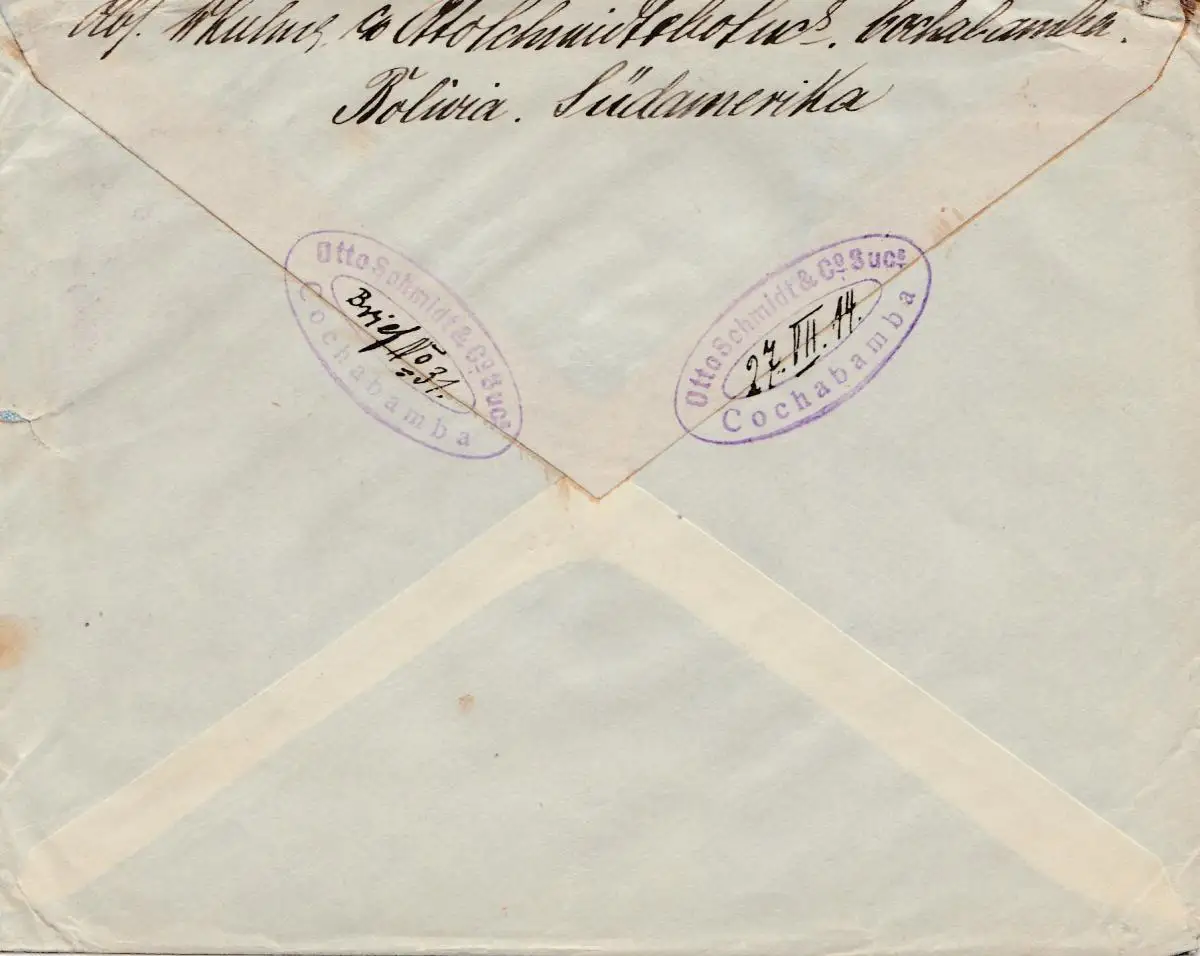 Abs. c/o Otto Schmidt & Co Sucs. Cochabamba.
Bolivia. Südamerika
Otto Schmidt & Co Sucs
Brief No 31.
Cochabamba
Otto Schmidt & Co Sucs
27. VII. 14.
Cochabamba